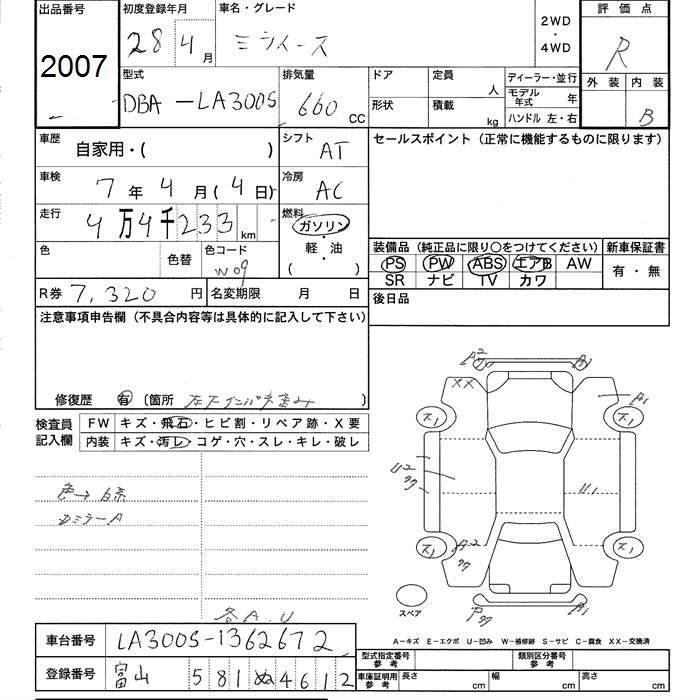 出品番号 初度登録年月 車名・グレード 2WD・4WD 評価点
2007 28 4月 ミライース R
型式 排気量 ドア 定員 人 ディーラー・並行 外装 内装
DBA-LA300S 660 CC 形状 積載 kg モデル年式 年 B
ハンドル 左・右
車歴 自家用・( ) シフト AT セールスポイント (正常に機能するものに限ります)
車検 7年 4月 (4日) 冷房 AC
走行 4万4千233 km 燃料 ガソリン・軽・油 ( )
色 色替 色コード W09
装備品 (純正品に限り○をつけてください) 新車保証書
PS PW ABS エアB AW 有・無
SR ナビ TV カワ
R券 7,320円 名変期限 月 日 後日品
注意事項申告欄 (不具合内容等は具体的に記入して下さい)
修復歴 有 〔箇所 左下インパネ歪み 〕
検査員記入欄 FW キズ・飛石・ヒビ割・リペア跡・X要
内装 キズ・汚レ・コゲ・穴・スレ・キレ・破レ
色→白系
ミラーA
各A.U
A2
XX
A1
ス1 ス1
U2
U1
ス1 A2 ス1
スペア
A1
A-キズ E-エクボ U-凹み W-補修跡 S-サビ C-腐食 XX-交換済
車台番号 LA300S-1362672
型式指定番号 参考 類別区分番号 参考
登録番号 富山 581 ぬ 4612
車庫証明用 参考 長さ cm 幅 cm 高さ cm